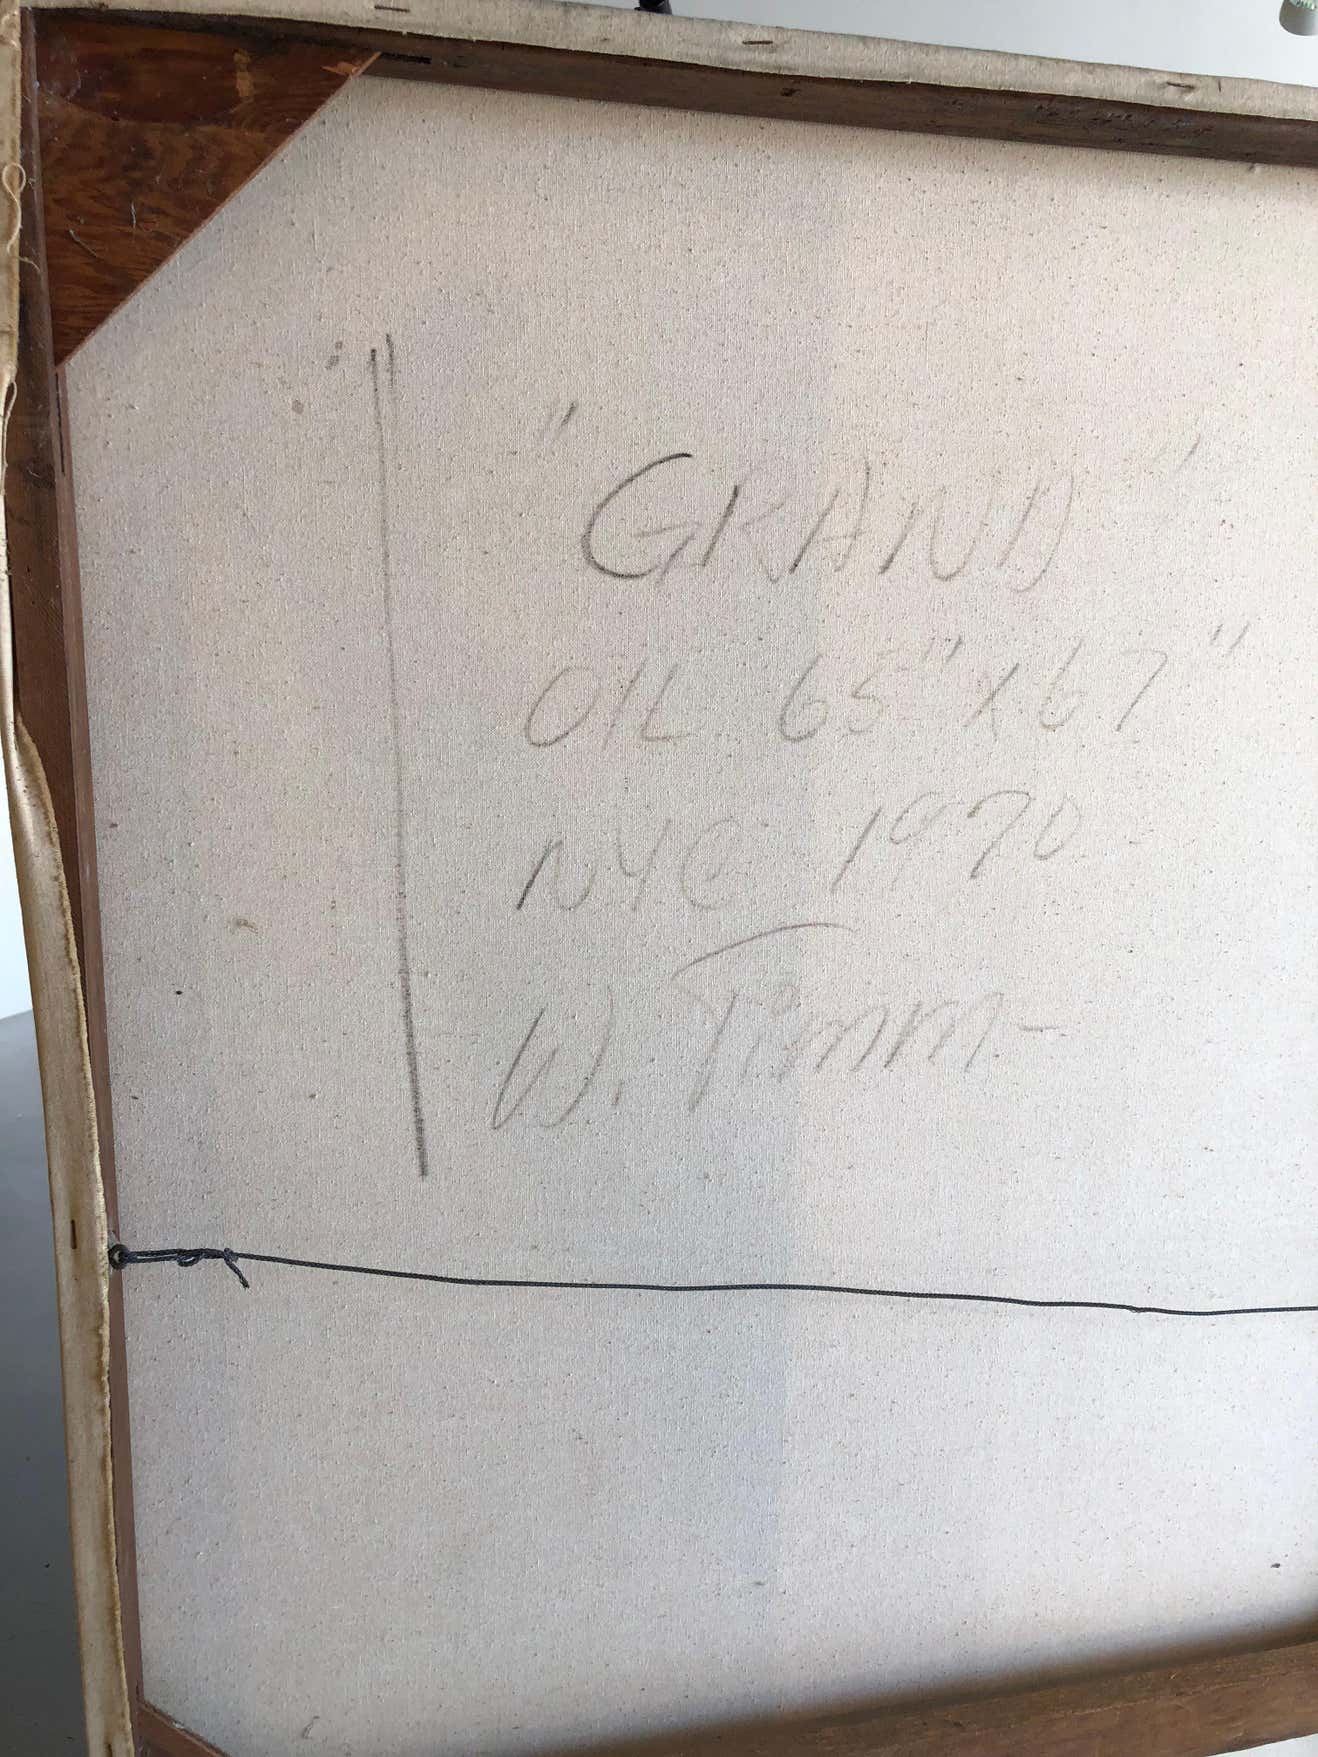 "GRAND"
OIL 65" X 67"
NYC 1970
W. Timm